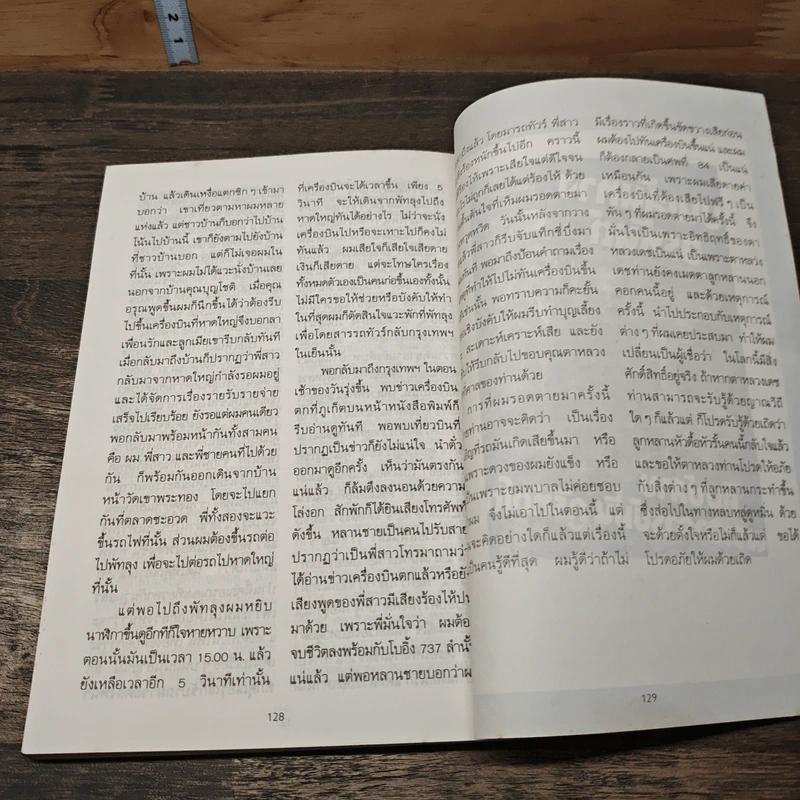 บ้าน แล้วเดินเหงื่อแตกซิก ๆ เข้ามา
บอกว่า เขาเที่ยวตามหาผมหลาย
แห่งแล้ว แต่ชาวบ้านก็บอกว่าไปบ้าน
โน้นไปบ้านนี้ เขาก็ยังตามไปยังบ้าน
ที่ชาวบ้านบอก แต่ก็ไม่เจอผมใน
ที่นั้น เพราะผมไม่ได้แวะนั่งบ้านเลย
นอกจากบ้านคุณบุญโชติ เมื่อคุณ
อรุณพูดขึ้นผมก็นึกขึ้นได้ว่าต้องรีบ
ไปขึ้นเครื่องบินที่หาดใหญ่จึงบอกลา
เพื่อนรักและลูกเมียเขารีบกลับทันที
เมื่อกลับมาถึงบ้านก็ปรากฏว่าพี่สาว
กลับมาจากหาดใหญ่กำลังรอผมอยู่
และได้จัดการเรื่องรายรับรายจ่าย
เสร็จไปเรียบร้อย ยังรอแต่ผมคนเดียว
พอกลับมาพร้อมหน้ากันทั้งสามคน
คือ ผม พี่สาว และพี่ชายคนที่ไปด้วย
กัน ก็พร้อมกันออกเดินจากบ้าน
หน้าวัดเขาพระทอง โดยจะไปแยก
กันที่ตลาดชะอวด พี่ทั้งสองจะแวะ
ขึ้นรถไฟที่นั้น ส่วนผมต้องขึ้นรถต่อ
ไปพัทลุง เพื่อจะไปต่อรถไปหาดใหญ่
ที่นั้น
แต่พอไปถึงพัทลุงผมหยิบ
นาฬิกาขึ้นดูอีกทีก็ใจหายหวาบ เพราะ
ตอนนั้นมันเป็นเวลา 15.00 น. แล้ว
ยังเหลือเวลาอีก 5 วินาทีเท่านั้น
ที่เครื่องบินจะได้เวลาขึ้น เพียง 5
วินาที จะให้เดินจากพัทลุงไปถึง
หาดใหญ่ทันได้อย่างไร ไม่ว่าจะนั่ง
เครื่องบินไปหรือจะเหาะไปก็คงไม่
ทันแล้ว ผมเสียใจก็เสียใจเสียดาย
เงินก็เสียดาย แต่จะโทษใครเรื่อง
ทั้งหมดตัวเองเป็นคนก่อขึ้นเองทั้งนั้น
ไม่มีใครขอให้ช่วยหรือบังคับให้ทำ
ในที่สุดผมก็ตัดสินใจแวะพักที่พัทลุง
เพื่อโดยสารรถทัวร์กลับกรุงเทพฯ
ในเย็นนั้น
พอกลับมาถึงกรุงเทพฯ ในตอน
เช้าของวันรุ่งขึ้น พบข่าวเครื่องบิน
ตกที่ภูเก็ตบนหน้าหนังสือพิมพ์ก็
รีบอ่านดูทันที พอพบเที่ยวบินที่
ปรากฏเป็นข่าวก็ยังไม่แน่ใจ นำตั๋ว
ออกมาดูอีกครั้ง เห็นว่ามันตรงกัน
แน่แล้ว ก็ล้มตึงลงนอนด้วยความ
โล่งอก สักพักก็ได้ยินเสียงโทรศัพท์
ดังขึ้น หลานชายเป็นคนไปรับสาย
ปรากฏว่าเป็นพี่สาวโทรมาถามว่า
ได้อ่านข่าวเครื่องบินตกแล้วหรือยัง
เสียงพูดของพี่สาวมีเสียงร้องไห้ปน
มาด้วย เพราะพี่มั่นใจว่า ผมต้อง
จบชีวิตลงพร้อมกับโบอิ้ง 737 ลำนั้น
แน่แล้ว แต่พอหลานชายบอกว่าผม
128
ถึงแล้ว โดยมารถทัวร์ พี่สาว
ต้องหนักขึ้นไปอีก คราวนี้
ให้เพราะเสียใจแต่ดีใจจน
ไม่ถูกก็เลยได้แต่ร้องไห้ ด้วย
ตื้นตันใจที่เห็นผมรอดตายมา
หวุดหวิด วันนั้นหลังจากวาง
แล้วพี่สาวก็รีบจับแท็กซี่บึ่งมา
ทันที พอมาถึงป้อนคำถามเรื่อง
ที่ทำให้ไปไม่ทันเครื่องบินขึ้น
เช่นนั้น พอทราบความก็คะยั้น
เชิงบังคับให้ผมรีบทำบุญเลี้ยง
สะเดาะห์เคราะห์เสีย และยัง
ให้รีบกลับไปขอบคุณตาหลวง
ที่ศาลของท่านด้วย
การที่ผมรอดตายมาครั้งนี้
ท่านอาจจะคิดว่า เป็นเรื่อง
ที่รถมันเกิดเสียขึ้นมา หรือ
เพราะดวงของผมยังแข็ง หรือ
เป็นเพราะยมพบาลไม่ค่อยชอบ
ผม จึงไม่เอาไปในตอนนี้ แต่
จะคิดอย่างใดก็แล้วแต่เรื่องนี้
เป็นคนรู้ดีที่สุด ผมรู้ดีว่าถ้าไม่
มีเรื่องราวที่เกิดขึ้นขัดขวางเสียก่อน
ผมต้องไปทันเครื่องบินขึ้นแน่ และผม
ก็ต้องกลายเป็นศพที่ 84 เป็นแน่
เหมือนกัน เพราะผมเสียดายค่า
เครื่องบินที่ต้องเสียไปฟรี ๆ เป็น
พัน ๆ ที่ผมรอดตายมาได้ครั้งนี้ จึง
มั่นใจเป็นเพราะอิทธิฤทธิ์ของตา
หลวงเดชเป็นแน่ เป็นเพราะตาหลวง
เดชท่านยังคงเมตตาลูกหลานนอก
คอกคนนี้อยู่ และด้วยเหตุการณ์
ครั้งนี้ นำไปประกอบกับเหตุการณ์
ต่าง ๆ ที่ผมเคยประสบมา ทำให้ผม
เปลี่ยนเป็นผู้เชื่อว่า ในโลกนี้มีสิ่ง
ศักดิ์สิทธิ์อยู่จริง ถ้าหากตาหลวงเดช
ท่านสามารถจะรับรู้ด้วยญาณวิถี
ใด ๆ ก็แล้วแต่ ก็โปรดรับรู้ด้วยเถิดว่า
ลูกหลานหัวดื้อหัวรั้นคนนี้กลับใจแล้ว
และขอให้ตาหลวงท่านโปรดให้อภัย
กับสิ่งต่าง ๆ ที่ลูกหลานกระทำขึ้น
ซึ่งส่อไปในทางหลบหลู่ดูหมิ่น ด้วย
จะด้วยตั้งใจหรือไม่ก็แล้วแต่ ขอได้
โปรดอภัยให้ผมด้วยเถิด
129
2
1